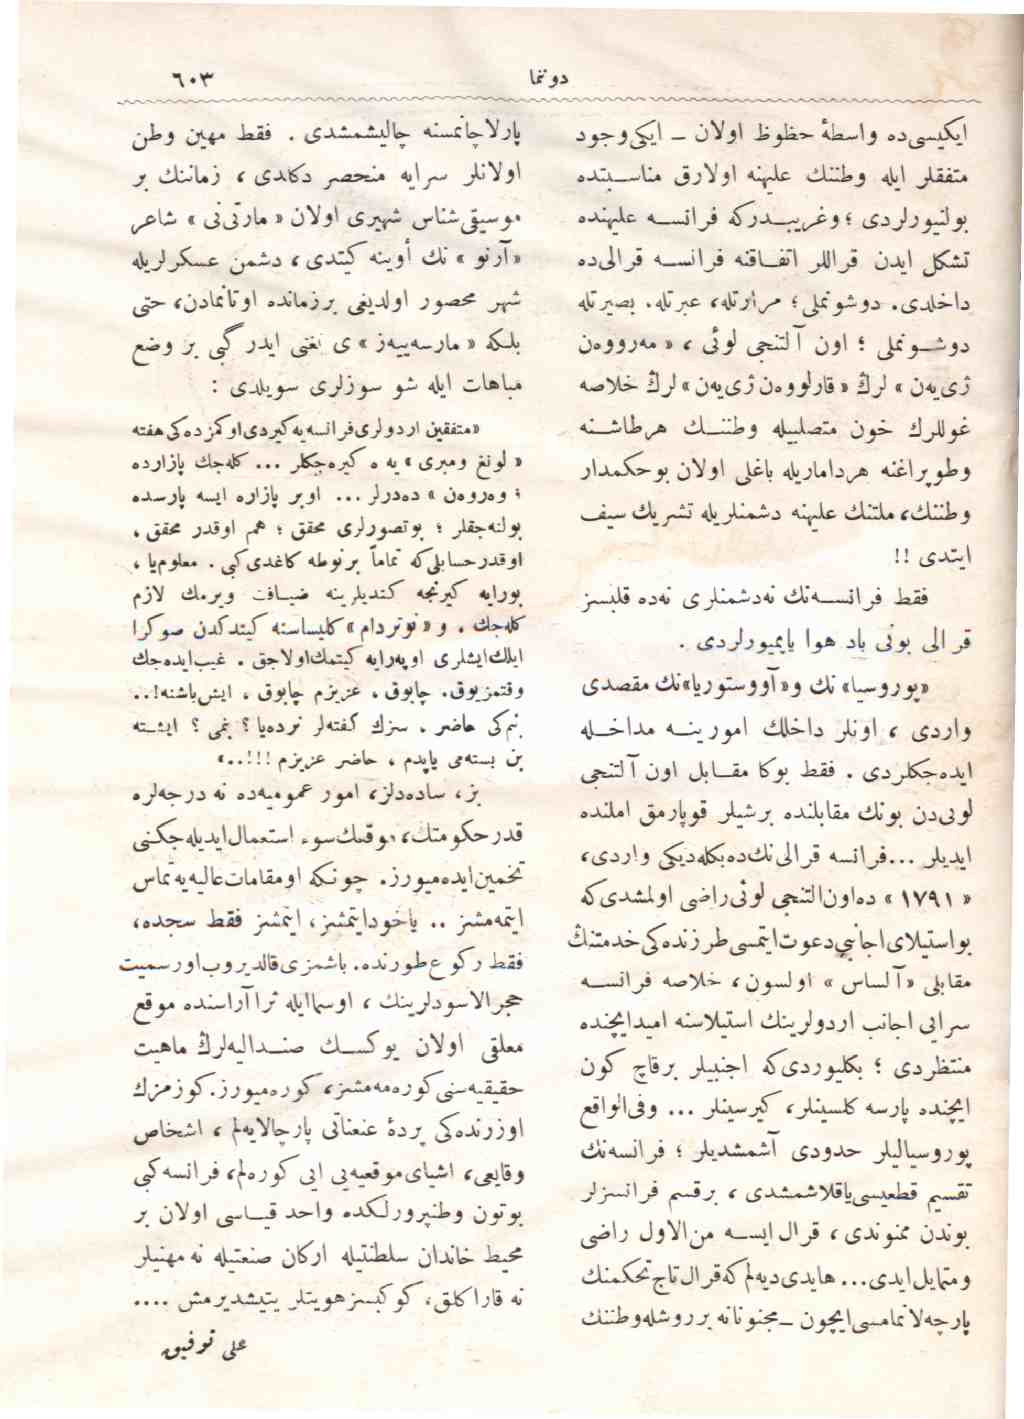 دوننما
٦٠٣
ایكیسی‌ده واسطهٔ حظوظ اولان ــ ایكی وجود
متفقلر ایله وطننك علیهنه اولارق مناسبتده
بولنیورلردی ؛ وغریبدركه فرانسه علیهنده
تشكل ایدن قراللر اتفاقنه فرانسه قرالی‌ده
داخلدی. دوشونملی ؛ مرارتله، عبرتله. بصیرتله
دوشونملی ؛ اون آلتنجی لوئی ، « مه‌رووه‌ن
ژی‌یه‌ن » لرڭ « قارلووه‌ن ژی‌یه‌ن » لرڭ خلاصه
غوللرك خون متصلبیله وطننك هرطاشنه
وطوپراغنه هرداماریله باغلی اولان بوحكمدار
وطننك، ملتنك علیهنه دشمنلریله تشریك سیف
ایتدی !!
فقط فرانسه‌نك نه‌دشمنلری نه‌ده قلبسز
قرالی بونی باد هوا یاپمیورلردی .
«پوروسیا» نك و«آووستوریا»نك مقصدی
واردی ، اونلر داخلك امورینه مداخله
ایده‌جكلردی . فقط بوكا مقابل اون آلتنجی
لوئی‌دن بونك مقابلنده برشیلر قوپارمق املنده
ایدیلر ...فرانسه قرالی‌نك‌ده بكله‌دیكی واردی،
« ١٧٩١ » ده‌اون‌التنجی لوئی راضی اولمشدی‌كه
بواستیلای اجانبی دعوت ایتمسی طرزنده‌كی خدمتنڭ
مقابلی «آلساس » اولسون، خلاصه فرانسه
سرایی اجانب اردولرینك استیلاسنه امیدایچنده
منتظردی ؛ بكلیوردی‌كه اجنبیلر برقاچ كون
ایچنده پارسه كلسینلر، كیرسینلر ... وفی‌الواقع
پوروسیالیلر حدودی آشمشدیلر ؛ فرانسه‌نك
تقسیم قطعیسی‌یاقلاشمشدی ، برقسم فرانسزلر
بوندن ممنوندی ، قرال ایسه من‌الاول راضی
ومتمایل ایدی... هایدی دیه‌لم‌كه قرال تاج تحكمنك
پارچه‌لانمامسی ایچون ــ مجنونانه برروشله‌وطننك
پارلاچانمسنه چالیشمشدی . فقط مهین وطن
اولانلر سرایه منحصر دكلدی ، زماننك بر
موسیقی‌شناس شهیری اولان « مارتی‌نی » شاعر
«آرنو » نك أوینه كیتدی ، دشمن عسكرلریله
شهر محصور اولدیغی برزمانده اوتانمادن، حتی
بلكه « مارسه‌ییه‌ز » ی تغنی ایدر گبی بر وضع
مباهات ایله شو سوزلری سویلدی :
«متفقین اردولری‌فرانسه‌یه‌كیردی‌اوكمزده‌كی‌هفته
« لونغ ومیری » یه ه كیره‌جكلر ... كله‌جك پازارده
« وه‌روه‌ن » ده‌درلر ... اوبر پازاره ایسه پارسده
بولنه‌جقلر ؛ بوتصورلری محقق ؛ هم اوقدر محقق ،
اوقدرحسابلی‌كه تماماً برنوطه كاغدی‌كبی . معلوم‌یا ،
بورایه كیرنجه كندیلرینه ضیافت ویرمك لازم
كله‌جك . و «نوتردام» كلیساسنه كیتدكدن صوكرا
ایلك‌ایشلری اوپه‌رایه كیتمك‌اولاجق . غیب‌ایده‌جك
وقتمز‌یوق. چابوق . عزیزم چابوق . ایش‌باشنه!..
بنم‌كی حاضر . سزك گفته‌لر نرده‌یا ؟ بمی ؟ ایشته
بن بسته‌می یاپدم ، حاضر عزیزم !!!..»
بز، ساده‌دلز، امور عمومیه‌ده نه درجه‌لره
قدرحكومتك، موقعك‌سوء استعمال‌ایدیله‌جكنی
تخمین‌ایده‌میورز. چونكه اومقامات‌عالیه‌یه‌تماس
ایتمه‌مشز .. یاخودایتمشز، ایتمشز فقط سجده،
فقط ركوع‌طورنده. باشمزی‌قالدیروب‌اورسمیت
حجرالاسودلرینك ، اوسماایله ثراآراسنده موقع
معلقی اولان یوكسك صندالیه‌لرڭ ماهیت
حقیقیه‌سنی كوره‌مه‌مشز، كوره‌میورز.كوزمزك
اوزرنده‌كی پردهٔ عنعناتی پارچالایه‌لم ، اشخاص
وقایعی، اشیای‌موقعیه‌یی ایی كوره‌لم، فرانسه‌كبی
بوتون وطنپرورلكده واحد قیاسی اولان بر
محیط خاندان سلطنتیله اركان صنعتیله نه مهنیلر
نه قاراكلق، كوكبسز‌هویتلر یتیشدیرمش ....
علی توفیق